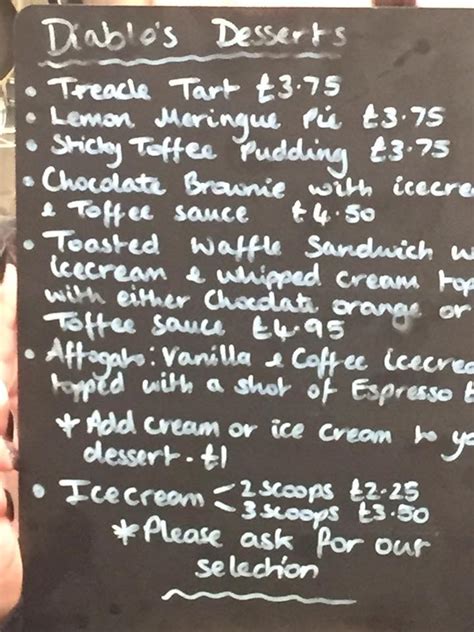 Diablo's Desserts
• Treacle Tart £3.75
• Lemon Meringue Pie £3.75
• Sticky Toffee Pudding £3.75
• Chocolate Brownie with icecrea
& Toffee sauce £4.50
• Toasted Waffle Sandwich w
icecream & whipped cream top
with either Chocolate orange or
Toffee sauce £4.95
• Affogato: Vanilla & Coffee icecrea
topped with a shot of Espresso £
* Add cream or ice cream to yo
dessert - £1
• Icecream < 2 scoops £2.25
3 scoops £3.50
* Please ask for our
selection